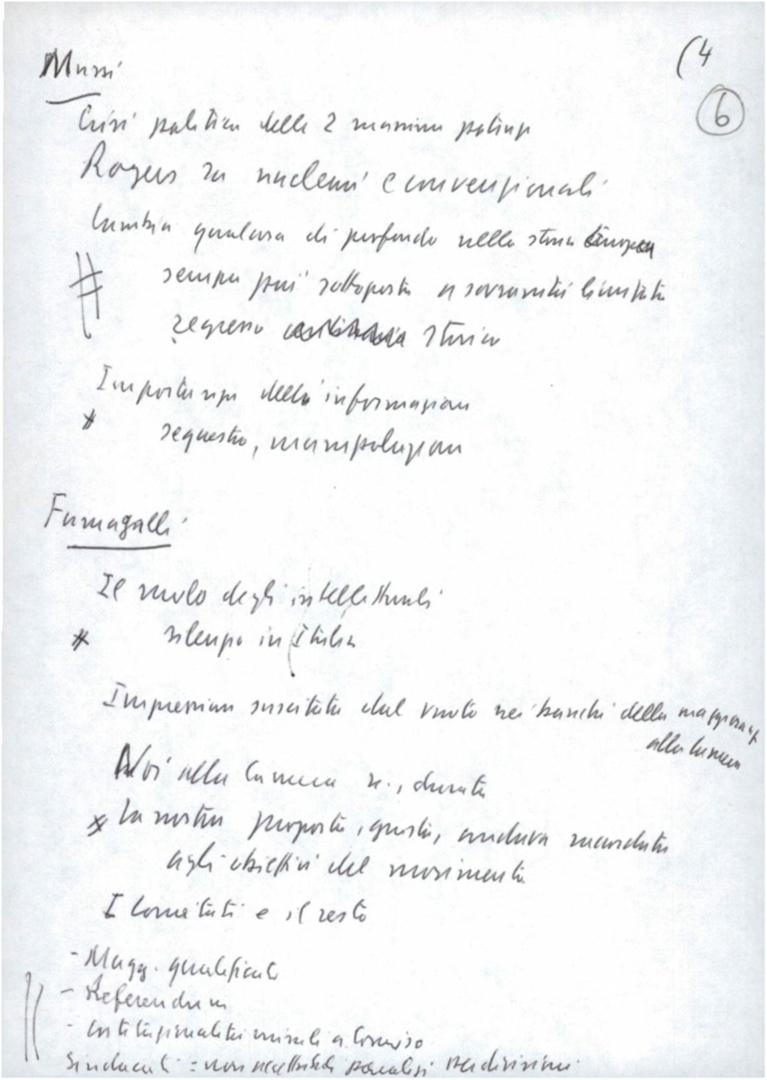 (4
6
Mussi
Crisi politica delle 2 massime potenze
Rogers su nucleari e convenzionali
Cambia qualcosa di profondo nella storia europea
sempre più sottoposta a sovranità limitata
regresso storico
Importanza dell'informazione
sequestro, manipolazione
Fumagalli
Il ruolo degli intellettuali
silenzio in Italia
Impressione suscitata dal vuoto nei banchi della maggioranza
alla Camera
Noi alla Camera durata
La nostra proposta, giusta, andava raccordata
agli obiettivi del movimento
I Comitati e il resto
- Magg. qualificate
- Referendum
- missili a Comiso
Sindacati = non paralisi